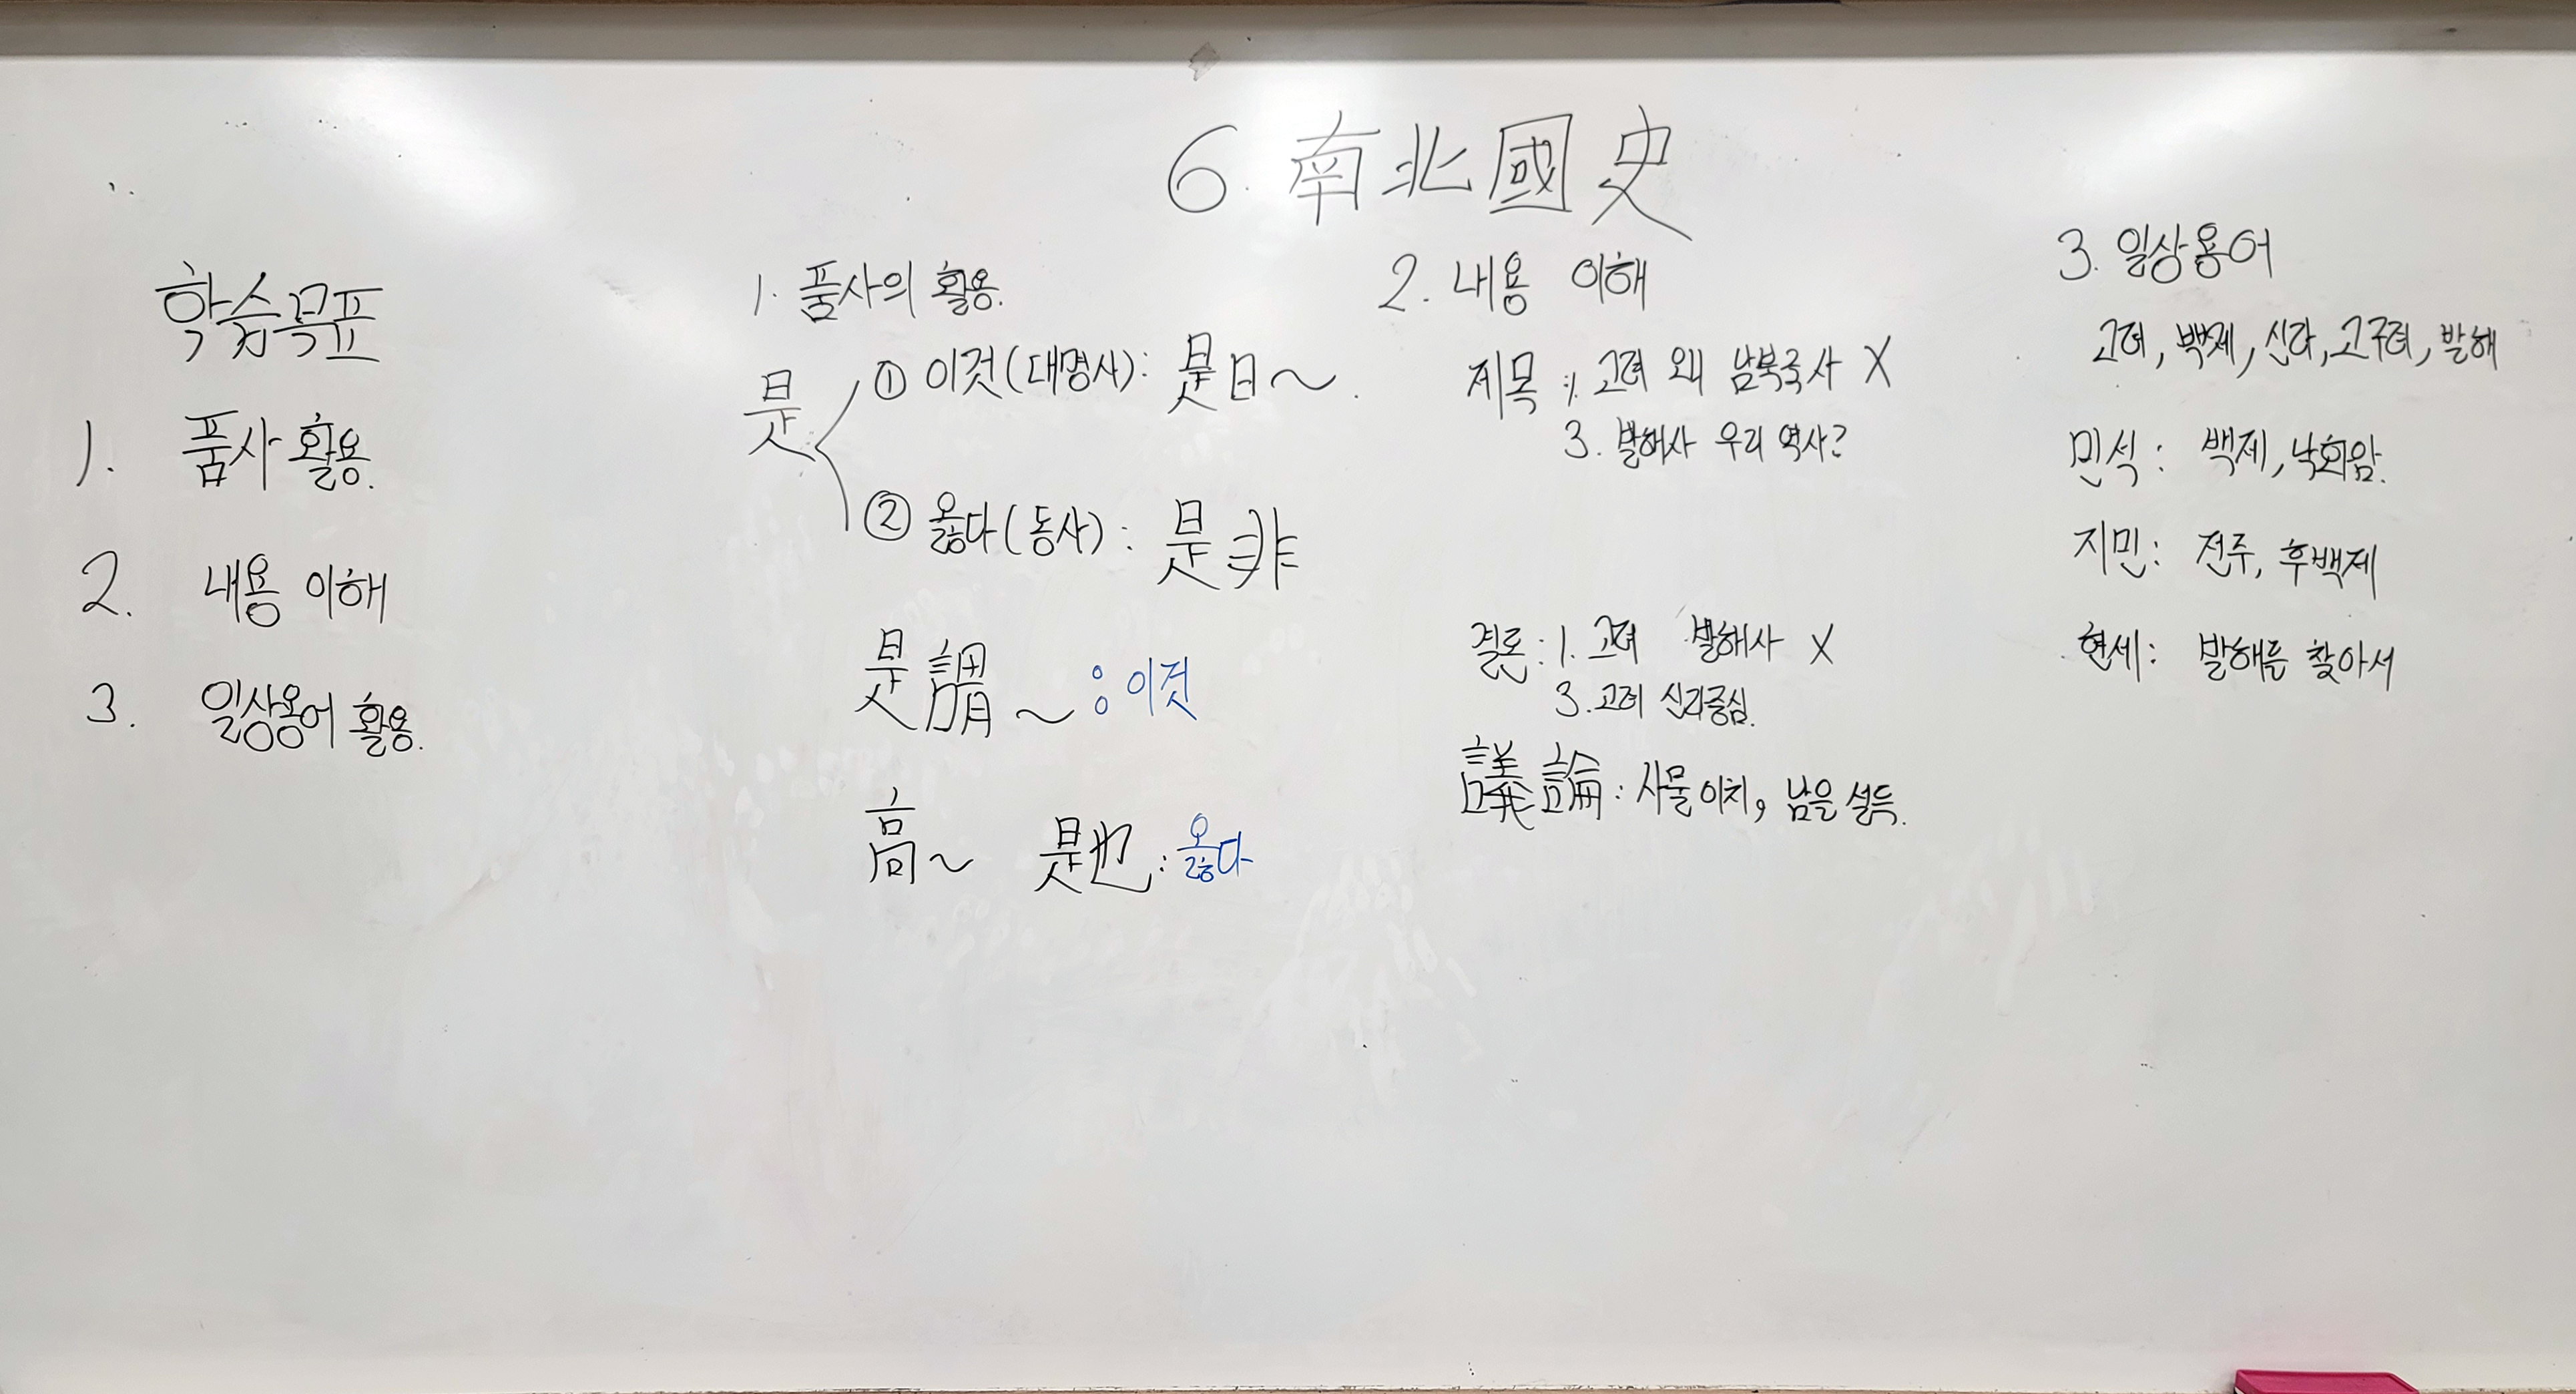 6. 南北國史
학습목표
1. 품사 활용.
2. 내용 이해
3. 일상용어 활용.
1. 품사의 활용.
是
① 이것(대명사): 是日~.
② 옳다(동사): 是非
是謂~: 이것
高~ 是也: 옳다
2. 내용 이해
제목: 1. 고려 왜 남북국사 X
3. 발해사 우리 역사?
결론: 1. 고려 발해사 X
3. 고려 신라중심.
議論: 사물 이치, 남을 설득.
3. 일상용어
고려, 백제, 신라, 고구려, 발해
민석: 백제, 낙화암.
지민: 전주, 후백제
현세: 발해를 찾아서